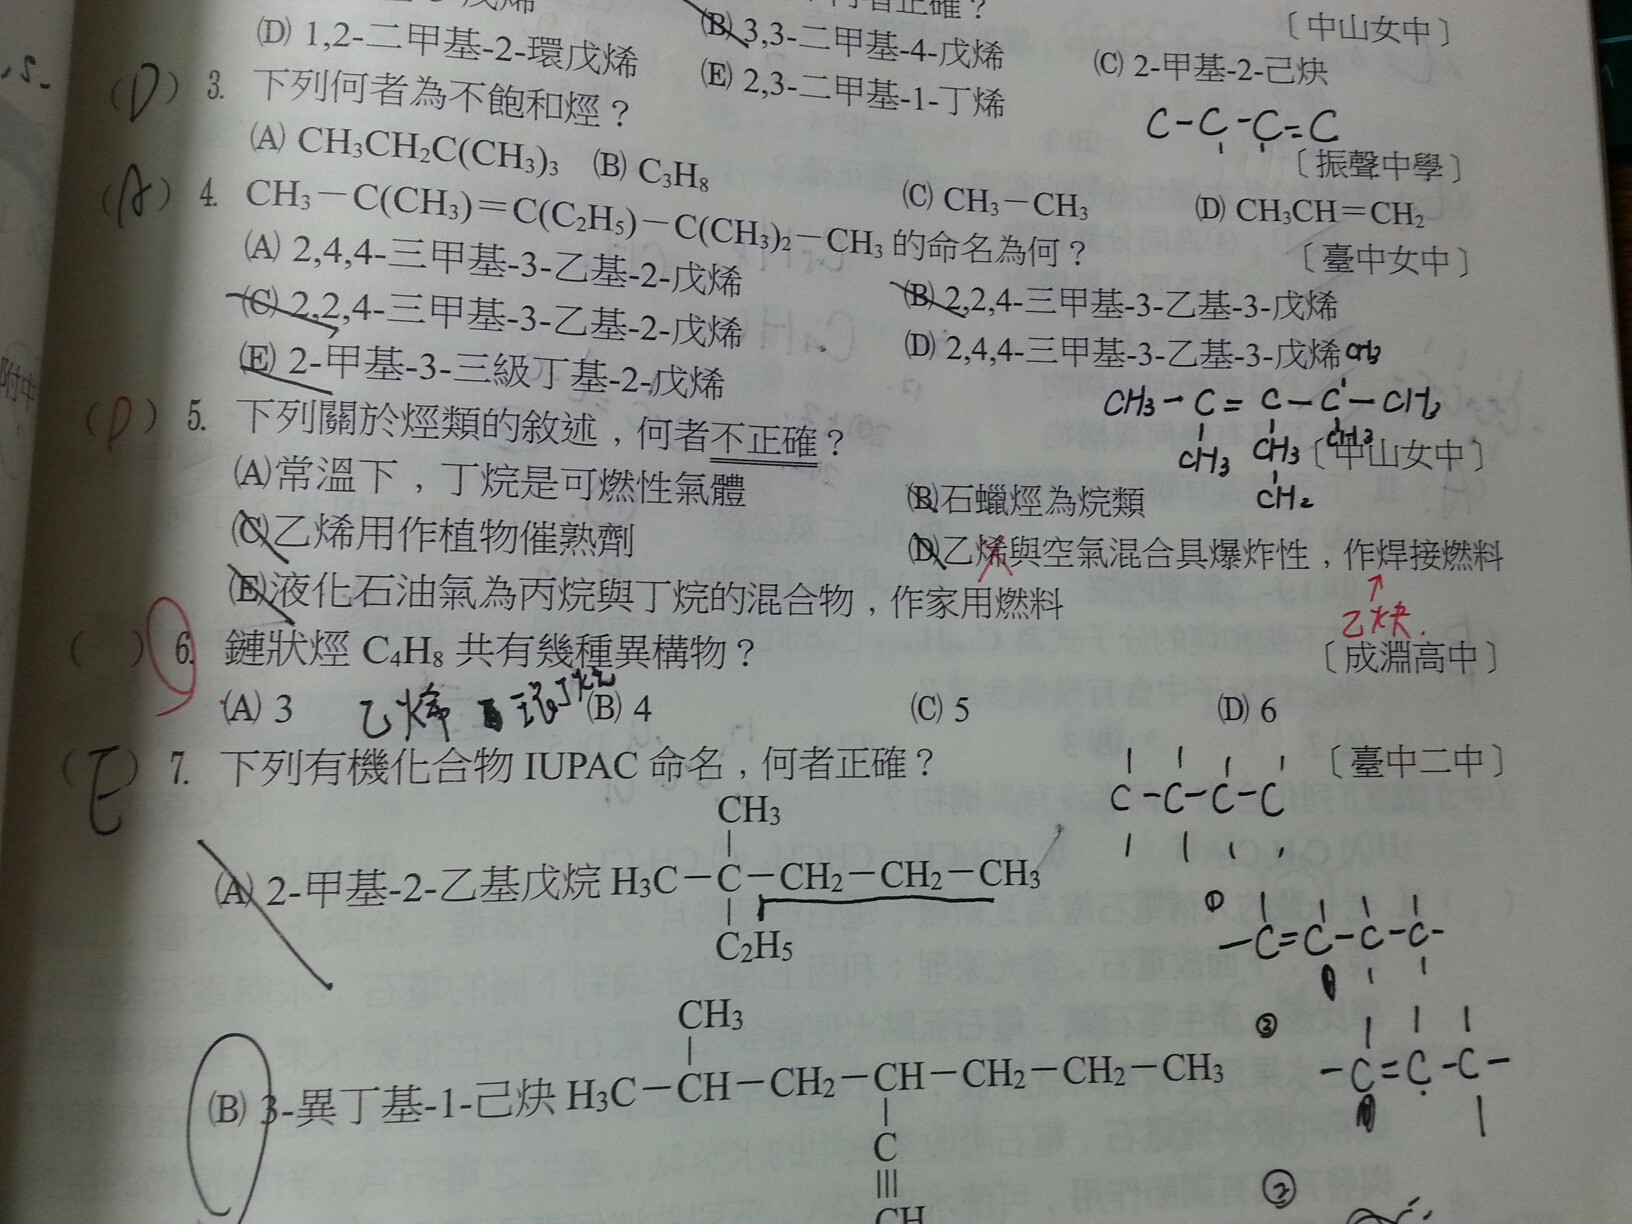 (D) 1,2-二甲基-2-環戊烯
(B) 3,3-二甲基-4-戊烯
(C) 2-甲基-2-己炔
(E) 2,3-二甲基-1-丁烯
〔中山女中〕
C-C-C=C
(D) 3. 下列何者為不飽和烴？
〔振聲中學〕
(A) CH3CH2C(CH3)3 (B) C3H8 (C) CH3－CH3 (D) CH3CH＝CH2
(A) 4. CH3－C(CH3)＝C(C2H5)－C(CH3)2－CH3 的命名為何？
〔臺中女中〕
(A) 2,4,4-三甲基-3-乙基-2-戊烯
(B) 2,2,4-三甲基-3-乙基-3-戊烯
(C) 2,2,4-三甲基-3-乙基-2-戊烯
(D) 2,4,4-三甲基-3-乙基-3-戊烯
(E) 2-甲基-3-三級丁基-2-戊烯
CH3
CH3-C=C-C-CH3
CH3 CH3 CH3
CH2
(D) 5. 下列關於烴類的敘述，何者不正確？
〔中山女中〕
(A)常溫下，丁烷是可燃性氣體
(B)石蠟烴為烷類
(C)乙烯用作植物催熟劑
(D)乙烯與空氣混合具爆炸性，作焊接燃料
乙炔.
(E)液化石油氣為丙烷與丁烷的混合物，作家用燃料
( ) 6. 鏈狀烴 C4H8 共有幾種異構物？
〔成淵高中〕
(A) 3 (B) 4 (C) 5 (D) 6
乙烯 環丁烷
(E) 7. 下列有機化合物 IUPAC 命名，何者正確？
〔臺中二中〕
C-C-C-C
CH3
(A) 2-甲基-2-乙基戊烷 H3C－C－CH2－CH2－CH3
C2H5
① -C=C-C-C-
CH3
② -C=C-C-
(B) 3-異丁基-1-己炔 H3C－CH－CH2－CH－CH2－CH2－CH3
C
CH
②